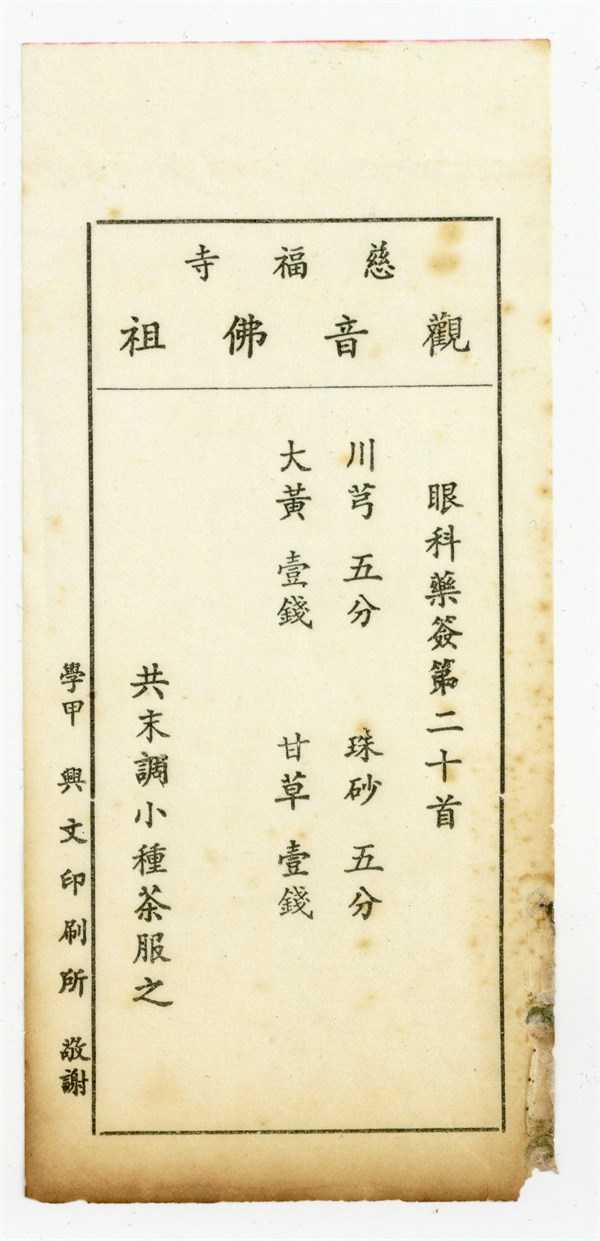 慈福寺
觀音佛祖
眼科藥簽第二十首
川芎 五分 珠砂 五分
大黃 壹錢 甘草 壹錢
共末調小種茶服之
學甲 興文印刷所 敬謝